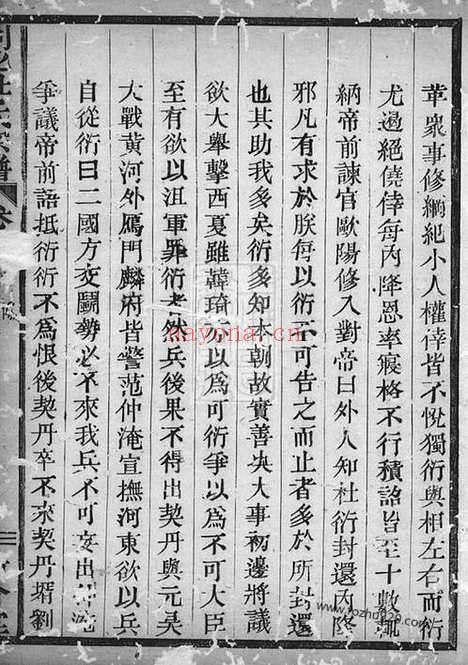 革衆事修綱紀小人權倖皆不悅獨衍與相左右而衍
尤過絕僥倖每內降恩率寢格不行積詔皆至十數輒
納帝前諫官歐陽修入對帝曰外人知杜衍封還內降
邪凡有求於朕每以衍不可告之而止者多於所封還
也其助我多矣衍多知本朝故實善决大事初邊將議
欲大舉擊西夏雖韓琦亦以為可衍爭以為不可大臣
至有欲以沮軍罪衍者然兵後果不得出契丹與元昊
大戰黄河外鴈門麟府皆警范仲淹宣撫河東欲以兵
自從衍曰二國方交鬭勢必不來我兵不可妄出仲淹
爭議帝前語抵衍衍不為恨後契丹卒不來契丹壻劉
杜氏宗譜
nayona.cn